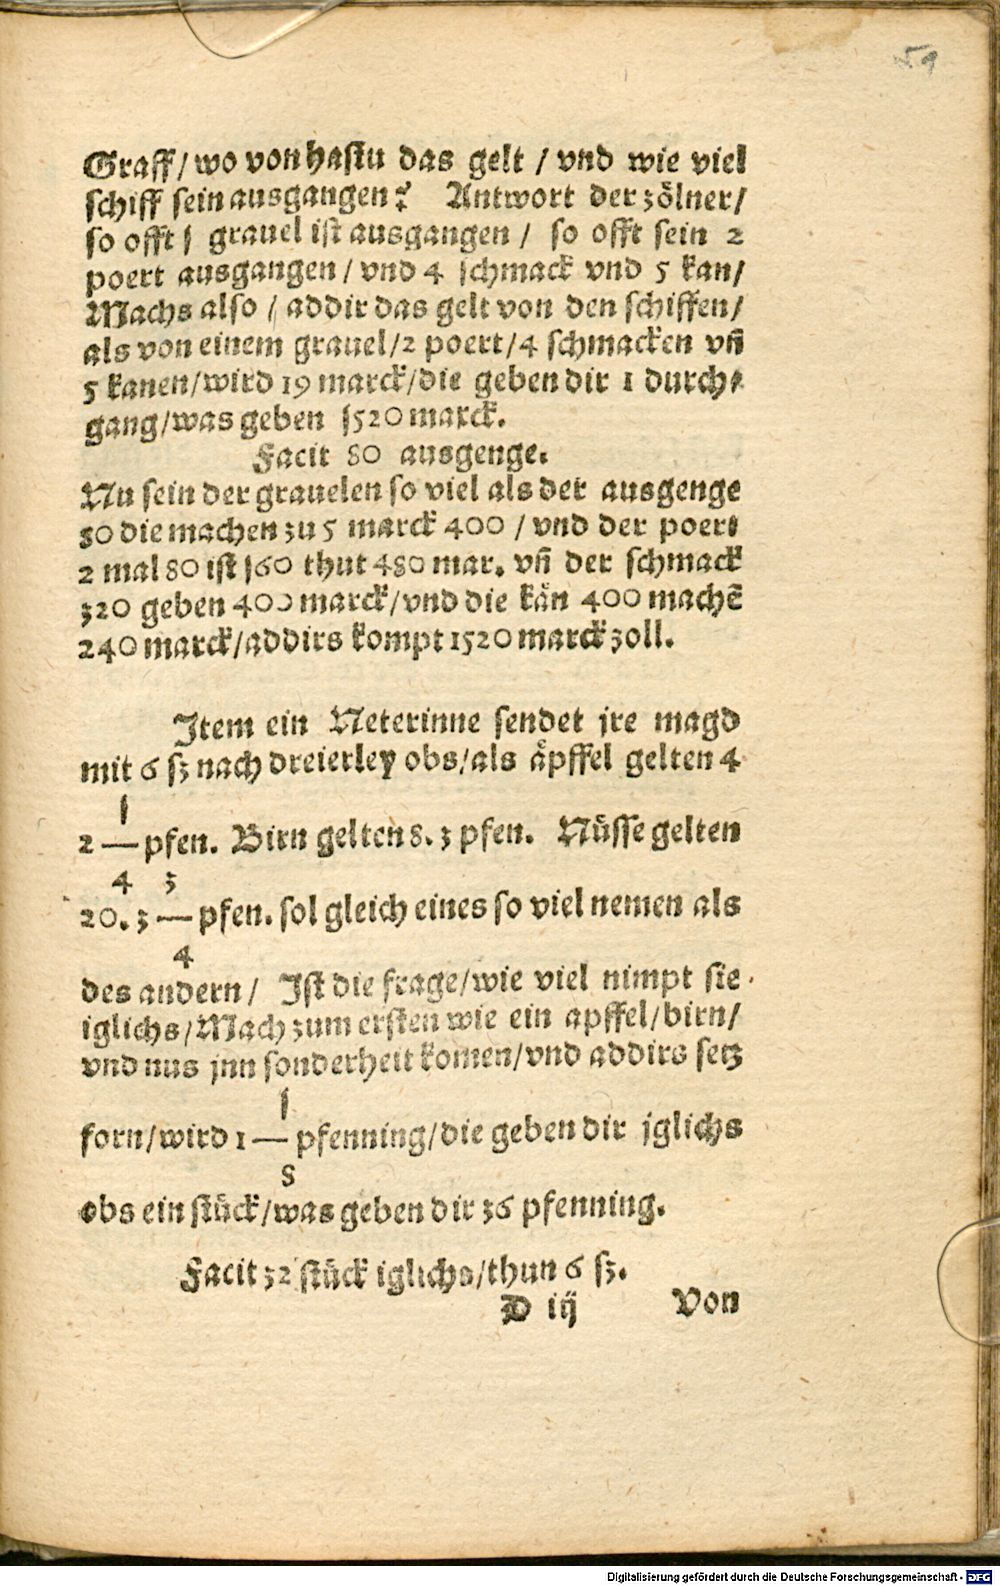 59
Graff/ wo von hastu das gelt / vnd wie viel
schiff sein ausgangen? Antwort der zölner/
so offt 1 grauel ist ausgangen / so offt sein 2
poert ausgangen/ vnd 4 schmack vnd 5 kan/
Machs also / addir das gelt von den schiffen/
als von einem grauel/2 poert/4 schmacken vñ
5 kanen/wird 19 marck/die geben dir 1 durch⸗
gang/was geben 1520 marck.
Facit 80 ausgenge.
Nu sein der grauelen so viel als der ausgenge
80 die machen zu 5 marck 400 / vnd der poert
2 mal 80 ist 160 thut 480 mar. vñ der schmack
320 geben 400 marck/vnd die kän 400 machē
240 marck/addirs kompt 1520 marck zoll.
Item ein Neterinne sendet jre magd
mit 6 ß nach dreierley obs/als äpffel gelten 4
1
2 — pfen. Birn gelten 8. 3 pfen. Nüsse gelten
4 3
20. 3 — pfen. sol gleich eines so viel nemen als
4
des andern/ Ist die frage/wie viel nimpt sie
iglichs/Mach zum ersten wie ein apffel/birn/
vnd nus jnn sonderheit komen/vnd addirs setz
1
forn/wird 1 — pfenning/die geben dir jglichs
8
obs ein stück/was geben dir 36 pfenning.
Facit 32 stück iglichs/thun 6 ß.
D iij Von
Digitalisierung gefördert durch die Deutsche Forschungsgemeinschaft - DFG